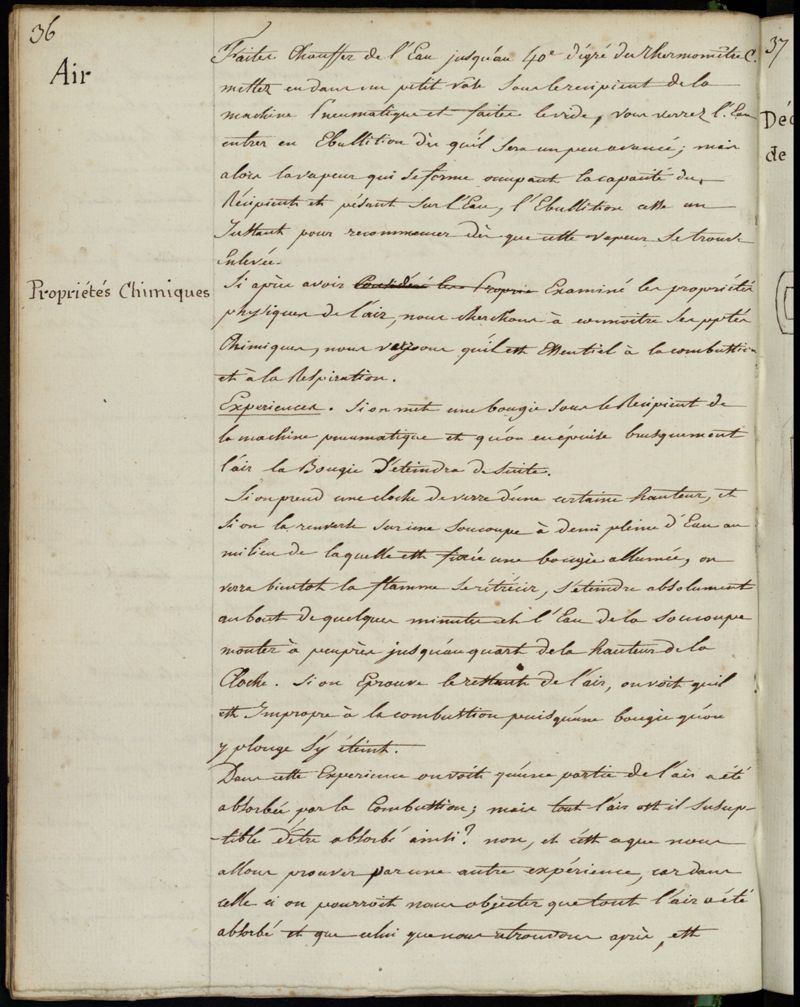 36
Air
Faites Chauffer de l'Eau jusqu'au 40e dégré du thermomètre C.
mettez en dans un petit vâse sous le recipient de la
machine Pneumatique et faites le vide, vous verrez l'Eau
entrer en Ebullition dès qu'il sera un peu avancé; mais
alors la vapeur qui se forme occupant la capacité du
Récipient et pésant sur l'Eau, l'Ebullition cesse un
Instant pour recommencer dès que cette vapeur se trouve
Enlevée.
Propriétés Chimiques
Si après avoir Considéré les Proprié Examiné les propriétés
physiques de l'air, nous cherchons à connoitre ses pptés
Chimiques, nous voyons qu'il est Essentiel à la combustion
et à la Respiration.
Experiences. Si on met une bougie sous le Recipient de
la machine pneumatique et qu'on en épuise brusquement
l'air la Bougie S'éteindra de suite.
Si on prend une cloche de verre d'une certaine hauteur, et
si on la renverse sur une soucoupe à demi pleine d'Eau au
milieu de laquelle est fixée une bougie allumée, on
verra bientot la flamme se rétrécir, s'éteindre absolument
au bout de quelques minutes et l'Eau de la soucoupe
monter à peu près jusqu'au quart de la hauteur de la
Cloche. Si on Eprouve le restant de l'air, on voit qu'il
est Impropre à la combustion puisqu'une bougie qu'on
y plonge s'y éteint.
Dans cette Experience on voit qu'une partie de l'air a été
absorbée par la Combustion; mais tout l'air est il suscep-
-tible d'être absorbé ainsi? non, et c'est ce que nous
allons prouver par une autre expérience, car dans
celle ci on pourroit nous objecter que tout l'air a été
absorbé et que celui que nous retrouvons après, est
37
Déc
de